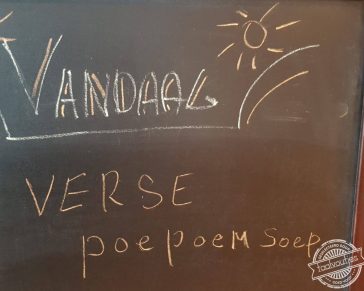 VANDAAG
VERSE
poepoeM soep
taalvoutjes